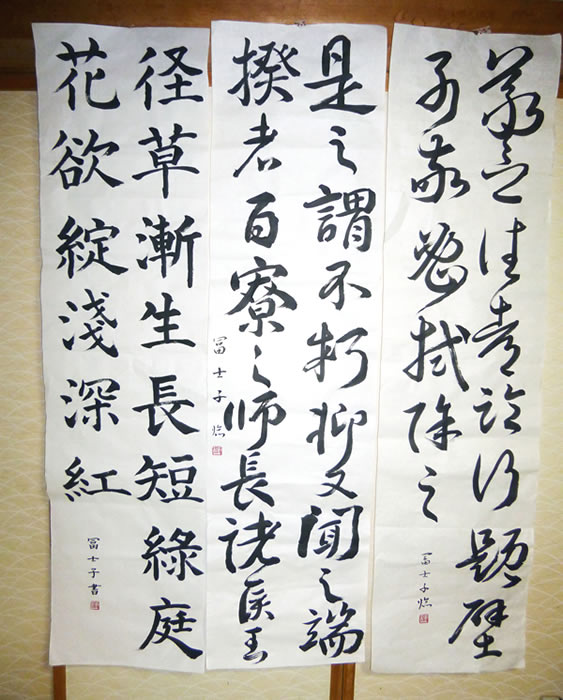 羲之往都臨行題壁
子敬密拭除之
冨士子臨
是之謂不朽抑又聞之端
揆者百寮之師長諸侯王
冨士子臨
径草漸生長短綠庭
花欲綻淺深紅
冨士子書